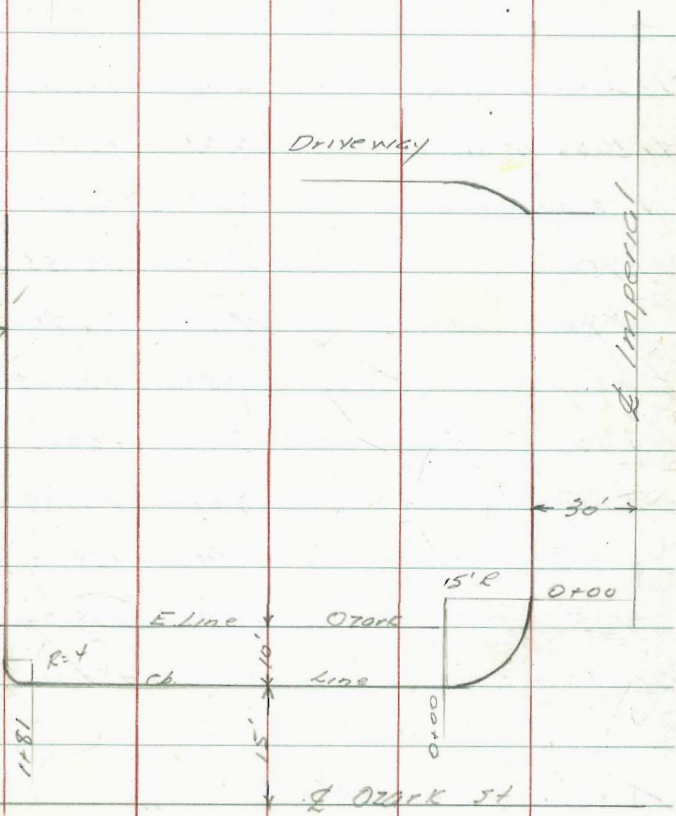 Driveway
℄ Imperial
30'
15' R
0+00
E. Line Ozark
10'
R=4
cb. Line
1+81
15'
0+00
℄ Ozark St